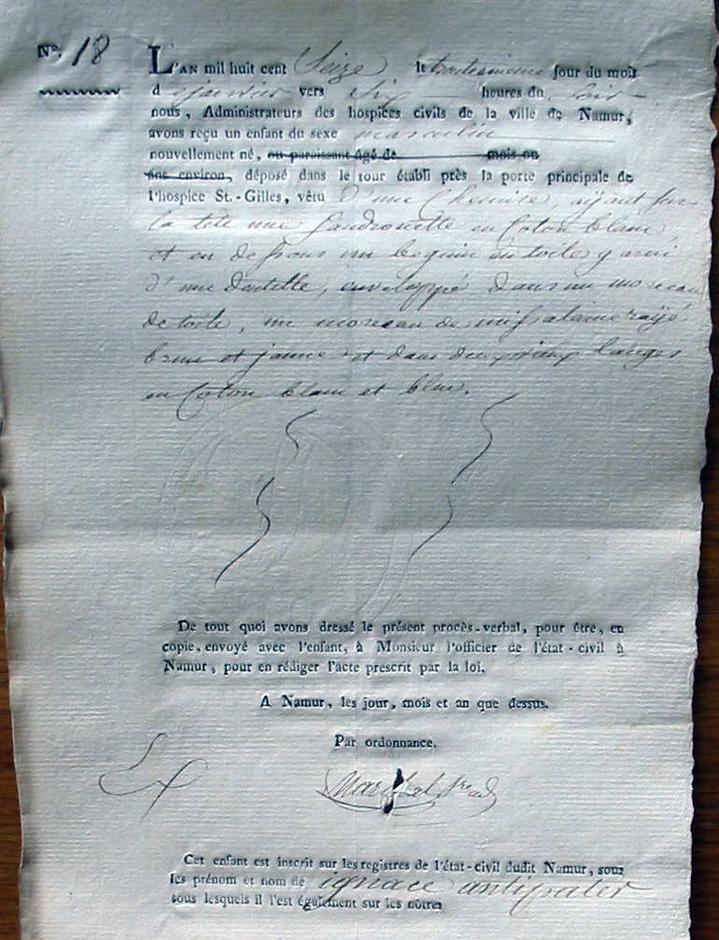 N.° 18
L'AN mil huit cent Seize le trentieme jour du mois
d janvier vers Six heures du soir
nous, Administrateurs des hospices civils de la ville de Namur,
avons reçu un enfant du sexe masculin
nouvellement né, ou paroissant âgé de mois ou
ans environ, déposé dans le tour établi près la porte principale de
l'hospice St.-Gilles, vêtu d'une Chemise, ayant sur
la tête une en Coton blanc,
et en dessous un beguin en toile garni
d'une dentelle, enveloppé dans un morceau
de toile, un morceau de rayé
brun et jaune et dans deux langes
en Coton blanc et bleu.
De tout quoi avons dressé le présent procès-verbal, pour être, en
copie, envoyé avec l'enfant, à Monsieur l'officier de l'état-civil à
Namur, pour en rédiger l'acte prescrit par la loi.
A Namur, les jour, mois et an que dessus.
Par ordonnance,
Cet enfant est inscrit sur les registres de l'état-civil dudit Namur, sous
les prénom et nom de ignace antipater
sous lesquels il l'est également sur les nôtres